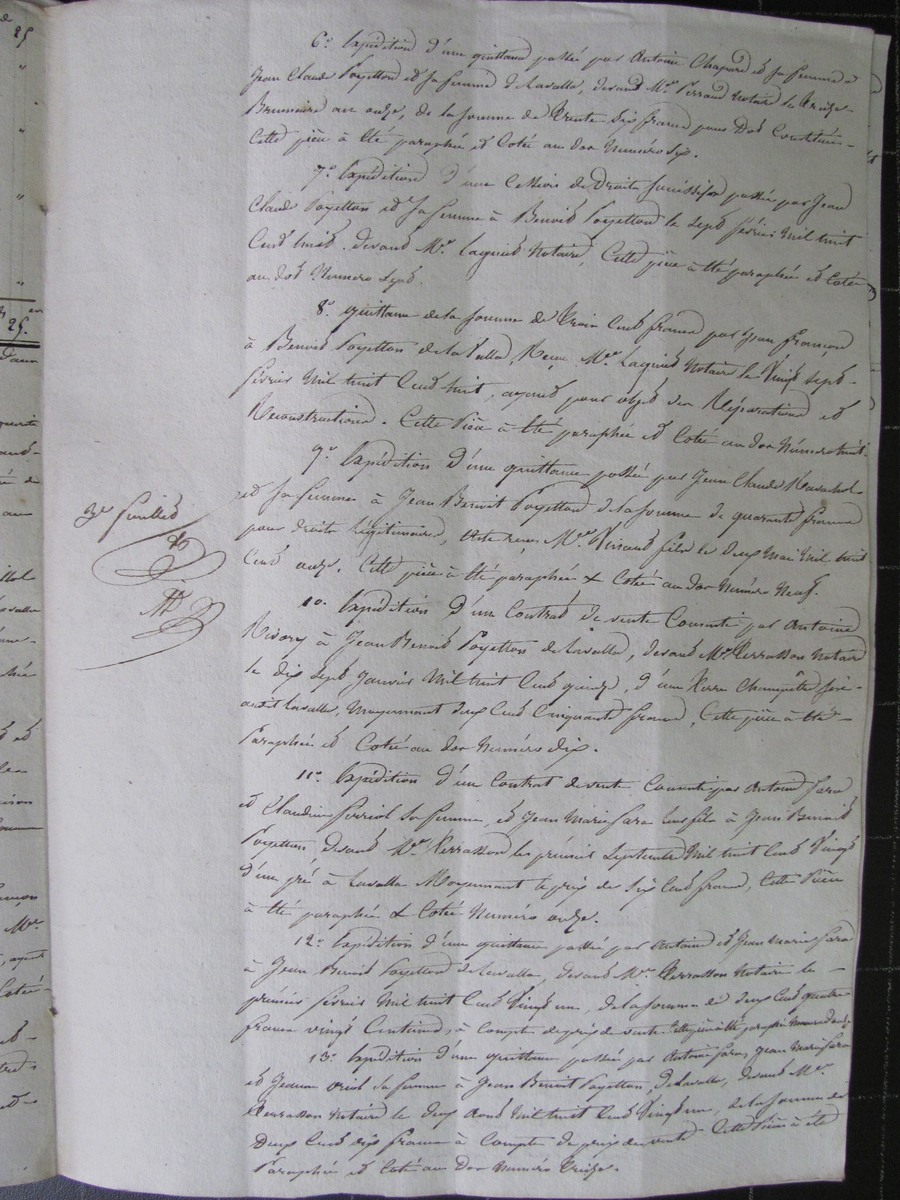 25
"
"
"
"
25.
3e feuillet
6° Expédition d'une quittance passée par Antoine Chapard et sa femme à
Jean Claude Poyetton et sa femme de Lavalla, devant Me. Perraud Notaire le treize
Brumaire an onze, de la somme de trente six francs pour Dot Constituée
Cette pièce a été paraphée et Cotée au dos Numéro Six.
7° Expédition d'une Cession de Droits successifs passée par Jean
Claude Poyetton et sa femme à Benoit Poyetton le sept février Mil huit
Cent huit. devant Me. Laguiet Notaire, Cette pièce a été paraphée et Cotée
au dos Numéro sept.
8° quittance de la somme de trois Cent francs par Jean François
à Benoit Poyetton de la Valla, Reçue Me. Laguiet Notaire le Vingt sept
février Mil huit Cent huit, ayant pour objet des Réparations et
Reconstructions. Cette Pièce a été paraphée et Cotée au dos Numéro huit.
9° Expédition d'une quittance passée par Jean Claude
et sa femme à Jean Benoit Poyetton de la somme de quarante francs
pour droits légitimaires, acte reçu Me. fils le deux Mai Mil huit
Cent onze. Cette pièce a été paraphée & Cotée au dos Numéro Neuf.
10. Expédition d'un Contrat de vente Consenti par Antoine
Rivory à Jean Benoit Poyetton de Lavalla, devant Me. Terrasson Notaire
le dix sept Janvier Mil huit Cent quinze, d'une Terre Champêtre sise
audit Lavalla, Moyennant deux Cent Cinquante francs, Cette pièce a été
Paraphée et Cotée au dos Numéro dix.
11° Expédition d'un Contrat de vente Consenti par Antoine Fara
et Claudine Ferriol sa femme, et Jean Marie Fara leur fils à Jean Benoit
Poyetton devant Me. Terrasson le premier Septembre Mil huit Cent Vingt
d'un pré à Lavalla Moyennant le prix de Six Cent francs, Cette Pièce
a été paraphée & Cotée Numéro onze.
12° Expédition d'une quittance passée par Antoine et Jean Marie Fara
à Jean Benoit Poyetton de Lavalla, devant Me. Terrasson Notaire le
premier février Mil huit Cent Vingt un, de la somme de deux Cent quatre
francs vingt Centimes, à Compte de prix de vente. Cette pièce a été paraphée Numéro douze
13° Expédition d'une quittance passée par Antoine Fara, Jean Marie Fara
et Jeanne Oriol sa femme à Jean Benoit Poyetton, de Lavalla, devant Me.
Terrasson Notaire le deux Août Mil huit Cent Vingt un, de la somme de
Deux Cent dix francs à Compte de prix de vente Cette Pièce a été
Paraphée et Cotée au Dos Numéro treize.